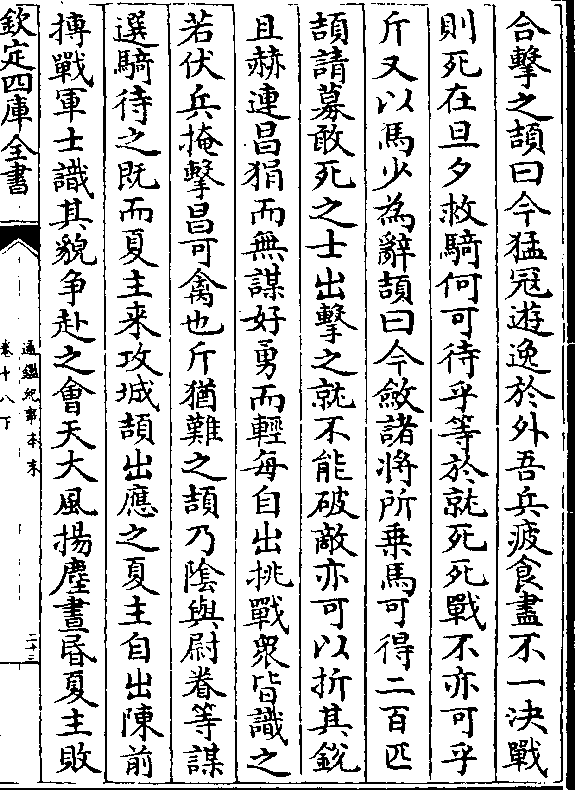 合擊之頡曰今猛冦遊逸於外吾兵疲食盡不一決戰
則死在旦夕救騎何可待乎等於就死死戰不亦可乎
斤又以馬少為辭頡曰今斂諸將所乗馬可得二百匹
頡請募敢死之士出擊之就不能破敵亦可以折其銳
且赫連昌狷而無謀好勇而輕每自出挑戰衆皆識之
若伏兵掩擊昌可禽也斤猶難之頡乃隂與尉眷等謀
選騎待之既而夏主来攻城頡出應之夏主自出陳前
搏戰軍士識其貌争赴之會天大風揚塵晝昏夏主敗
欽定四庫全書
通鑑紀事本末
卷十八下
二十三